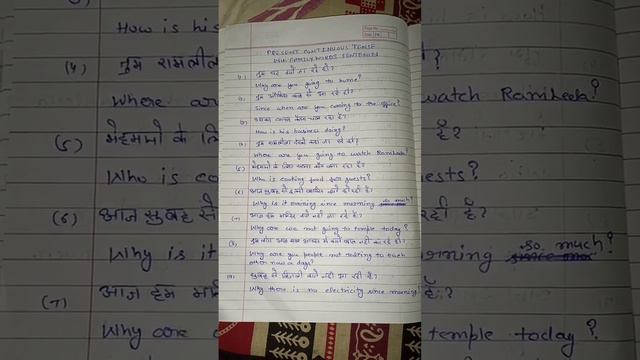 How is his
(4) तुम रामलीला
Where are
(5) मेहमानों के लि
Who is co
(6) आज सुबह से
Why is it
(7) आज हम
Why are
PRESENT CONTINUOUS TENSE
WH FAMILY WORDS SENTENCES
(1) तुम घर क्यों जा रहे हो?
Why are you going to home?
(2) तुम ऑफिस कब से आ रहे हो?
Since when are you coming to the office?
(3) उसका चल रहा है?
How is his business doing?
(4) तुम रामलीला देखने कहां जा रहे हो?
Where are you going to watch Ramleela?
(5) मेहमानों के लिए खाना कौन बना रहा है?
Who is cooking food for guests?
(6) आज सुबह से इतनी बारिश क्यों हो रही है?
Why is it raining since morning so much?
(7) आज हम मंदिर क्यों नहीं जा रहे हैं?
Why are we not going to temple today?
(8) तुम लोग आज कल आपस में क्यों बात नहीं कर रहे हो?
Why are you people not talking to each other now a days?
(9) सुबह से बिजली क्यों नहीं आ रही है?
Why there is no electricity since morning
watch Ramleela?
है?
ests?
रही है?
rning so much?
हैं?
temple today?